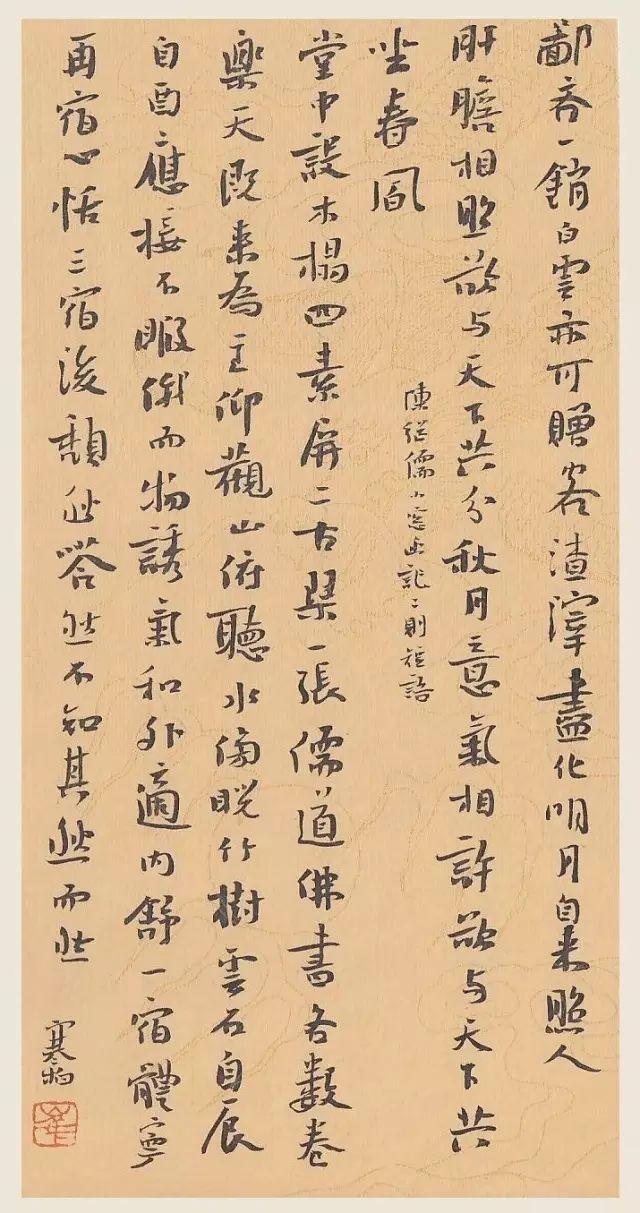 鄙吝一銷白雲亦可贈客渣滓盡化明月自来照人
肝膽相照欲与天下共分秋月意氣相許欲与天下共
坐春風
陳継儒小窓幽記二則短語
堂中設木榻四素屏二古琹一張儒道佛書各數卷
樂天既来為主仰觀山俯聽水傍睨竹樹雲石自辰
自酉應接不暇俄而物誘氣和外適内舒一宿體寧
再宿心恬三宿後頹然嗒然不知其然而然
寒